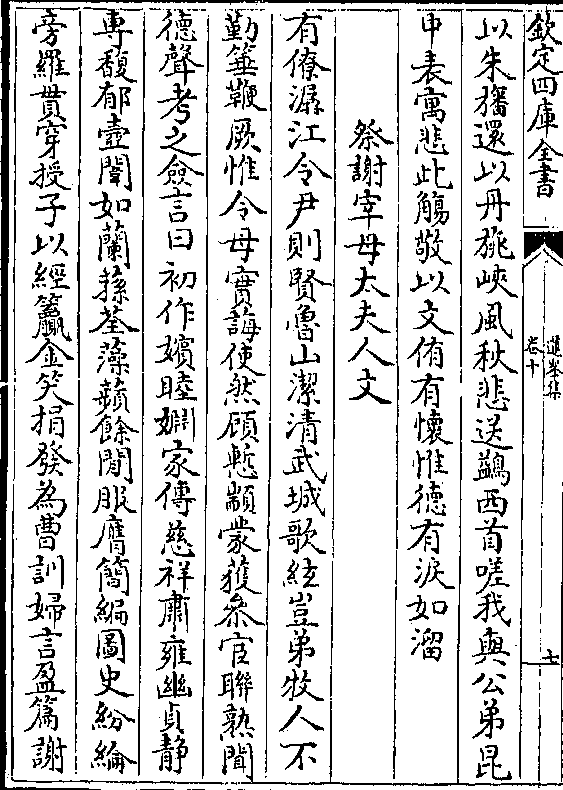 欽定四庫全書
蓮峯集
卷十
七
以朱旛還以丹旐峽風秋悲送鷁西首嗟我與公弟昆
申表寓悲此觴敬以文侑有懷惟德有淚如溜
祭謝宰母太夫人文
有僚潺江令尹則賢魯山潔清武城歌絃豈弟牧人不
勤箠鞭厥惟令母實誨使然顧慙顓蒙獲參官聯熟聞
德聲考之僉言曰初作嬪睦婣家傳慈祥肅雍幽貞静
專馥郁壼闈如蘭蓀荃藻蘋餘閒服膺簡編圖史紛綸
旁羅貫穿授子以經籯金笑捐發為曹訓婦言盈篇謝